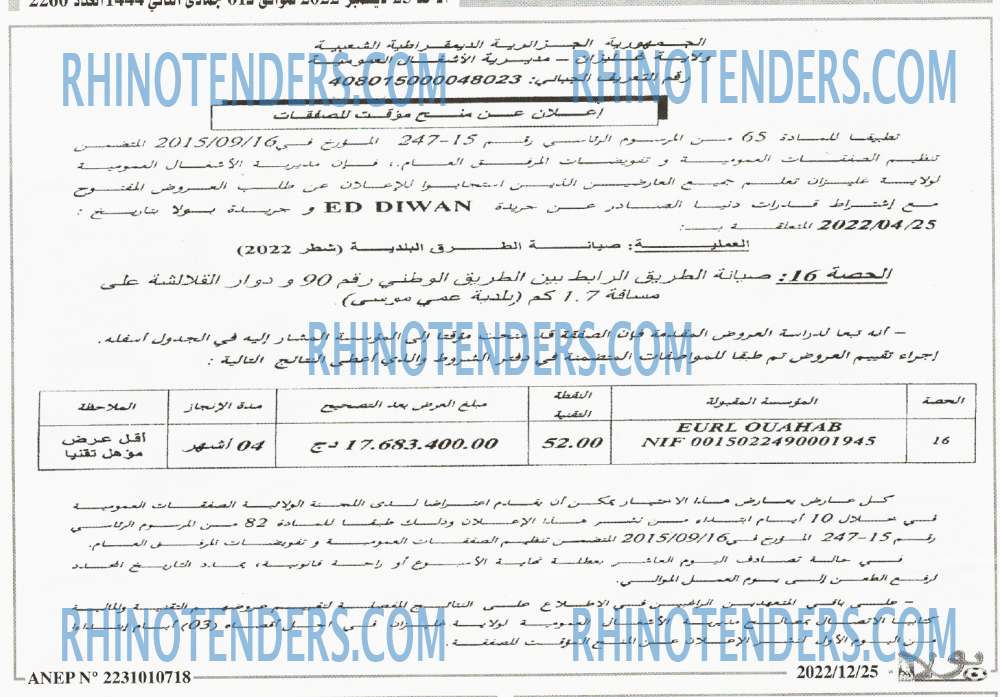 الأحد 25 ديسمبر 2022 الموافق لـ01 جمادى الثاني 1444 العدد 2260
الجـمـهوريـة الجـزائريـة الديمقراطية الشعبية
ولايـة غليزان – مديريـة الأشغال العموميـة
رقم التعريف الجبائي: 408015000048023
RHINOTENDERS.COM RHINOTENDERS.COM
إعـلان عـن مـنـح مـؤقـت للصفقات
تطبيقا للمـادة 65 مـن المرسـوم الرئاسي رقـم 15-247 المـؤرخ في 2015/09/16 المتضمـن
تنظيم الصفقات العموميـة و تفويضات المرفـق العـام، فـإن مديريـة الأشغال العموميـة
لولايـة غليزان تعلـم جميـع العارضيـن الذيـن استجابـوا للإعلان عن طلب العـروض المفتـوح
مـع إشتراط قـدرات دنيـا الصـادر عـن جريدة ED DIWAN و جريـدة بـولا بتاريـخ :
2022/04/25 المتعلقـة بـ:
العمليـــة: صيانـة الطـرق البلديـة (شطر 2022)
الحصة 16: صيانة الطريق الرابط بين الطريق الوطني رقم 90 و دوار القلالشة على
مسافة 1.7 كم (بلدية عمي موسى).
RHINOTENDERS.COM
– أنه تبعا لدراسة العروض المقدمة فإن الصفقة قد منحت مؤقتا إلى المؤسسة المشار إليه في الجدول أسفله.
إجراء تقييم العروض تم طبقا للمواصفات المتضمنة في دفتر الشروط والذي أعطى النتائج التالية :
الحصة المؤسسة المقبولة النقطة التقنية مبلغ العرض بعد التصحيح مدة الإنجاز الملاحظة
16 EURL OUAHAB NIF 0015022490001945 52.00 17.683.400.00 دج 04 أشهر أقل عرض مؤهل تقنيا
كـل عـارض يعـارض هـذا الاختيـار يمكـن أن يقـدم اعتراضـا لـدى اللجنـة الولائيـة للصفقـات العموميـة
فـي خـلال 10 أيـام ابتـداء مـن نشـر هـذا الإعـلان وذلـك طبقـا للمـادة 82 مـن المرسـوم الرئاسي
رقـم 15-247 المـؤرخ في 2015/09/16 المتضمن تنظيم الصفقات العمومية و تفويضات المرفق العام.
فـي حالـة تصـادف اليـوم العاشـر بعطلـة نهايـة الأسبـوع أو راحـة قانونيـة، يمـدد التاريـخ المحـدد
لرفـع الطعـن إلـى يـوم العمـل الموالـي.
– علـى باقـي المتعهديـن الراغبيـن فـي الاطـلاع علـى النتائـج المفصلـة لتقييـم عروضهـم التقنيـة والماليـة
كتابيـا الاتصال بمصالـح مديريـة الأشغـال العموميـة لولايـة غليـزان فـي أجـل أقصـاه (03) أيـام إبتـداءا
مـن اليـوم الأول لنشـر الإعـلان عـن المنـح المؤقـت للصفقـة.
RHINOTENDERS.COM RHINOTENDERS.COM
ANEP N° 2231010718 2022/12/25 بولا